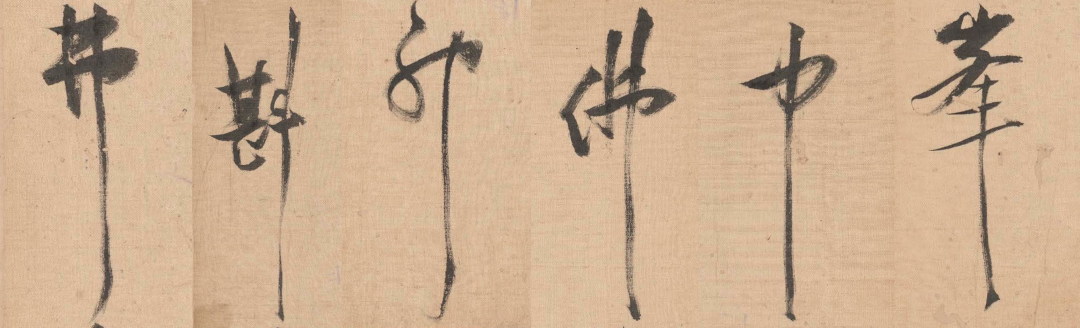 井 斟 佛 中 峯